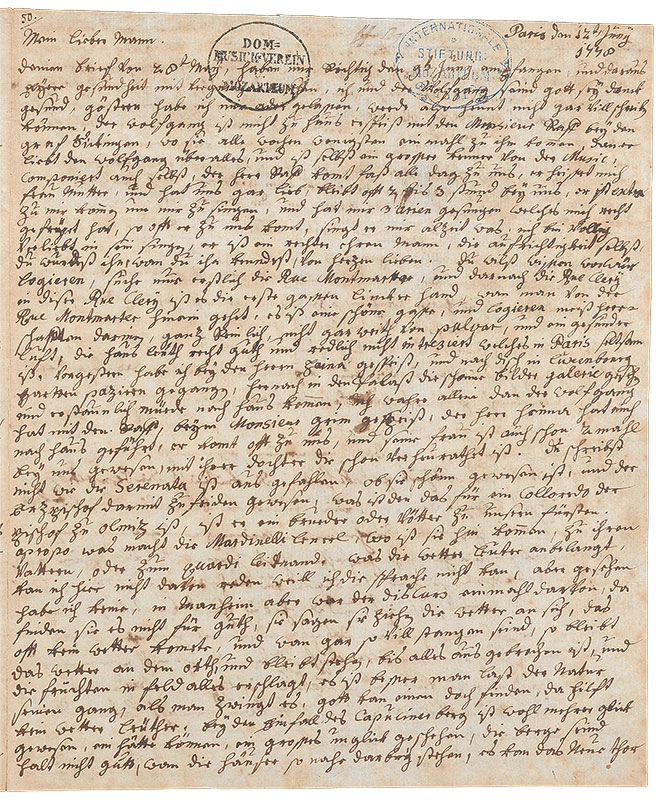 50.
Paris den 12ten Juny
1778
Mein lieber Mann.
DOM=
MUSICK-VEREIN
MOZARTEUM
INTERNATIONALE
STIFTUNG
MOZARTEUM
deinen brief von 28ten May, haben mir Richtig den empfangen, und daraus
gesundheit mit vergnügen ich und der wolfgang seind gott seÿ danck
gesund, göstern habe ich mir ader gelassen, werde heünt nicht gar vill schreiben
können, der wolfgang ist nicht zu haus er speist mit den Monsieur Raff beÿ den
graf Sückingen, wo sie alle wochen wenigsten ein mahl zu ihm komen dan er
liebt den wolfgang über alles, und ist selbst ein grosser kenner von der Music,
Componiert auch selbst, der herr Raff komt fast alle tag zu uns, er heist mich
frau Mutter, und hat uns gar lieb, bleibt oft 2 bis 3 stund beÿ uns, er ist extra
zu mir komen um mir zu singen, und hat mir 3 arien gesungen welches mich recht
gefreyet hat, so oft er zu uns komt, singt er mir alzeit was, ich bin völlig
verliebt in sein singen, er ist ein rechter ehren mann, die aufrichtigkeit selbst,
du wurdest ihn wan du ihn kenest, von herzen lieben. du wilst wissen wo wür
logieren, suche nur erstlich die Rue Montmartre, und darnach die Rue Clery
in dieser Rue Clery ist es die erste gassen lincker hand wan man von der
Rue Montmartre hinein gehet, es ist eine schöne gasse, und logieren meist herr=
schafften darinen, ganz Reinlich, nicht gar weith von und ein gesunder
luft, die haus leüth recht guth und redlich nicht intressiert welches in Paris seltsam
ist. Vorgestern habe ich beÿ den herrn haina gespeist, und nach disch in Luxenbourg
gartten spaziren gegangen, hernach in den balast die schöne bilder galerie gesehen
und erstaunlich müede nach haus komen, ich ware allein dan der wolfgang
hat mit den Raff beÿm Monsieur grim gespeist, der herr heina hat mich
nach haus geführt, er komt oft zu uns, und seine frau ist auch schon 2 mahl
beÿ uns gewesen, mit ihrer dochter die schon verheÿrathet ist. du schreibst
nicht wie die Serenata ist aus gefallen, ob sie schön gewesen ist, und der
erzbischof darmit zu friden gewesen, was ist den das für ein Colloredo der
bischof zu olmiz ist, ist er ein brueder oder vötter zu unsern fürsten.
apropo was macht die Nardinelli wo ist sie hin komen, zu ihren
Vattern, oder zum was die wetter leüter anbelangt,
kan ich hier nicht davon reden weill ich die sprache nicht kan, aber gesehen
habe ich keine, in Manheim aber war der discurs einmahl darvon, da
finden sie es nicht für guth, sie sagen sie ziehen die wetter an sich, das
oft kein wetter komete, und wan gar so vill stangen seind, so bleibt
das wetter an dem orth und bleibt stehen, bis alles aus gebrochen ist, und
die früchten in feld alles erschlagt, es ist besser man last der Natur
seinen gang, als man zwingt es, gott kan einen doch finden, da hilft
kein wetter leüther, beÿ den Einfall des Capuciner berg ist wohl mehrer glück
gewesen, ein hätte können, ein grosses unglück geschehen, die berge seind
halt nicht gutt, wan die häuser so nahe darbeÿ stehen, es kan das Neue thor